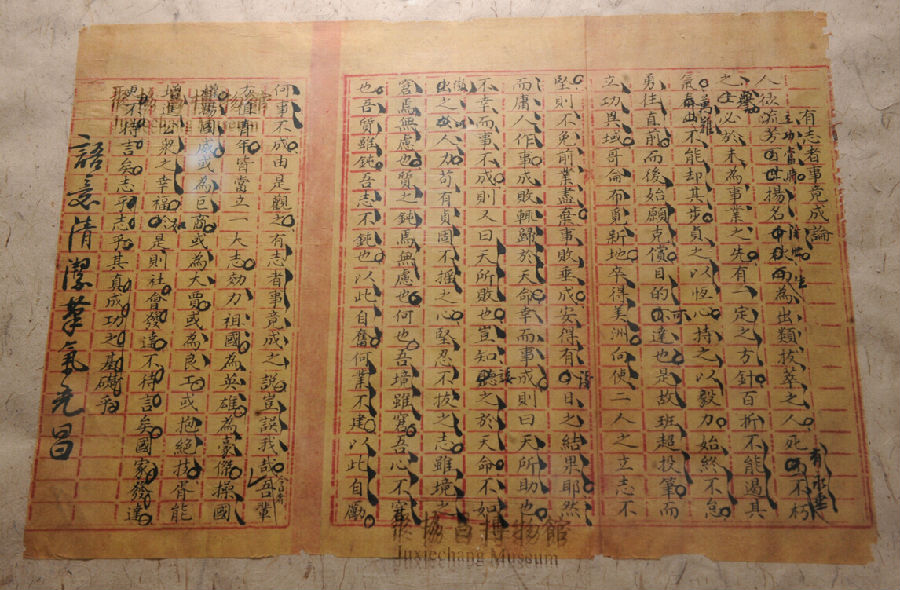 有志者事竟成論
人欲流芳百世揚名千秋而為出類拔萃之人死而不朽
之士必於未為事業之先有一定之方針百折不能遏其
氣萬難不能却其步貞之以恆心持之以毅力始終不怠
勇往直前而後始願克償目的亦達也是故班超投筆而
立功異域哥侖布覓新地卒得美洲向使二人之立志不
堅則不免前業盡棄事敗垂成安得有日之結果耶然
而庸人作事成敗輒歸於天命幸而事成則曰天所助也
不幸而事不成則又曰天所敗也豈知聽之於天命不如
出之於人力苟有貞固不搖之心堅忍不拔之志雖境之
窘焉無慮也質之鈍焉無慮也何也吾境雖窘吾心不窘
也吾質雖鈍吾志不鈍也以此自奮何業不建以此自勵
何事不成由是觀之有志者事竟成之說豈誤我哉吾輩
青年皆當立一大志効力祖國為英雄為豪傑揚國
威或為巨商或為大賈或為良工或抱絕技胥能
增進之幸福是則社會發達不待言矣國家發達
更不待言矣志乎志乎其真成功之基礎乎
語意清潔筆氣充昌
聚協昌博物館
Juxiechang Museum
聚協昌博物館
Juxiechang Museum